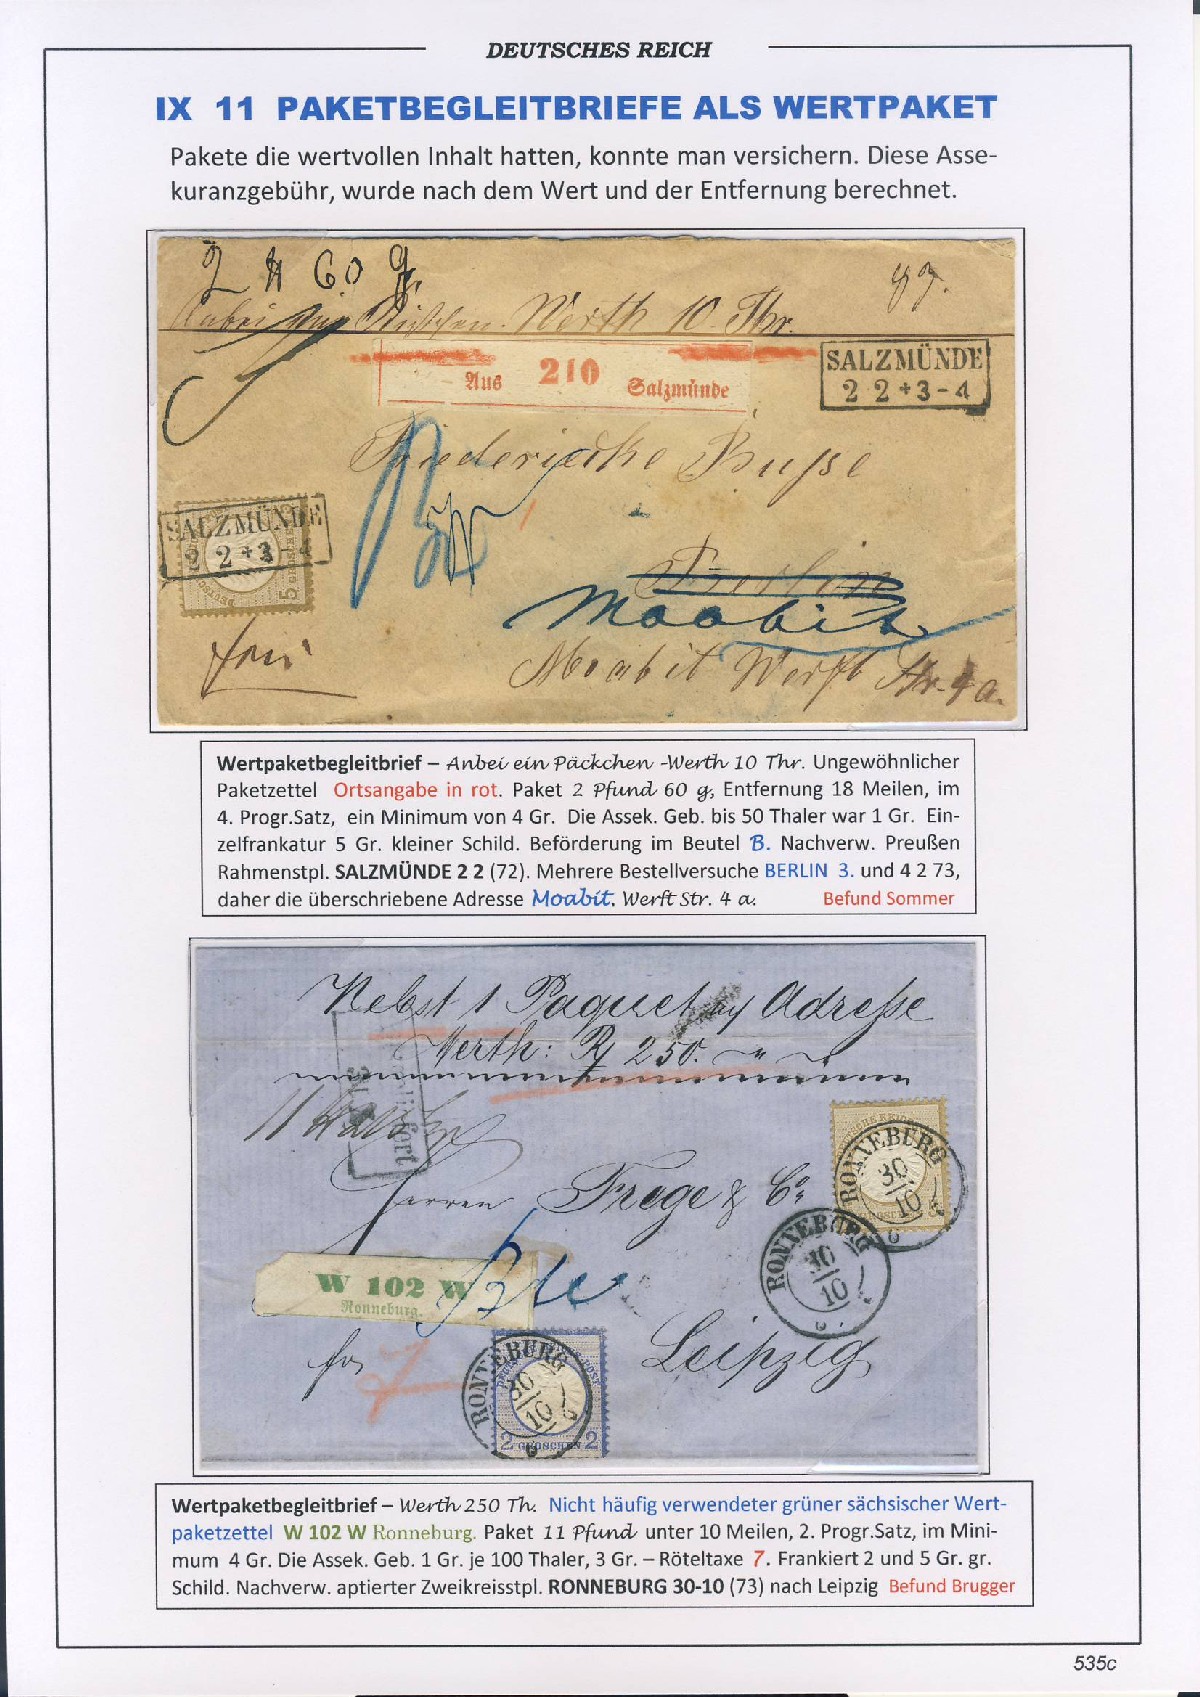 DEUTSCHES REICH
IX 11 PAKETBEGLEITBRIEFE ALS WERTPAKET
Pakete die wertvollen Inhalt hatten, konnte man versichern. Diese Asse-
kuranzgebühr, wurde nach dem Wert und der Entfernung berechnet.
2 60
Anbei ein Kistchen. Werth 10 Thr.
Aus 210 Salzmünde
SALZMÜNDE
2 2 + 3 - 4
Friedericke Buße
SALZMÜNDE
2 2 + 3 - 4
5
Berlin
Moabit
frei
Moabit Werft Str. 4 a.
Wertpaketbegleitbrief – Anbei ein Päckchen -Werth 10 Thr. Ungewöhnlicher
Paketzettel Ortsangabe in rot. Paket 2 Pfund 60 g, Entfernung 18 Meilen, im
4. Progr.Satz, ein Minimum von 4 Gr. Die Assek. Geb. bis 50 Thaler war 1 Gr. Ein-
zelfrankatur 5 Gr. kleiner Schild. Beförderung im Beutel B. Nachverw. Preußen
Rahmenstpl. SALZMÜNDE 2 2 (72). Mehrere Bestellversuche BERLIN 3. und 4 2 73,
daher die überschriebene Adresse Moabit. Werft Str. 4 a. Befund Sommer
Nebst 1 Paquet Adresse
Werth: 250.
11
Herren Frege & Co
RONNEBURG
30
10
RONNEBURG
30
10
W 102 W
Ronneburg.
7
Leipzig
RONNEBURG
30
10
2 GROSCHEN 2
Wertpaketbegleitbrief – Werth 250 Th. Nicht häufig verwendeter grüner sächsischer Wert-
paketzettel W 102 W Ronneburg. Paket 11 Pfund unter 10 Meilen, 2. Progr.Satz, im Mini-
mum 4 Gr. Die Assek. Geb. 1 Gr. je 100 Thaler, 3 Gr. – Röteltaxe 7. Frankiert 2 und 5 Gr. gr.
Schild. Nachverw. aptierter Zweikreisstpl. RONNEBURG 30-10 (73) nach Leipzig Befund Brugger
535c